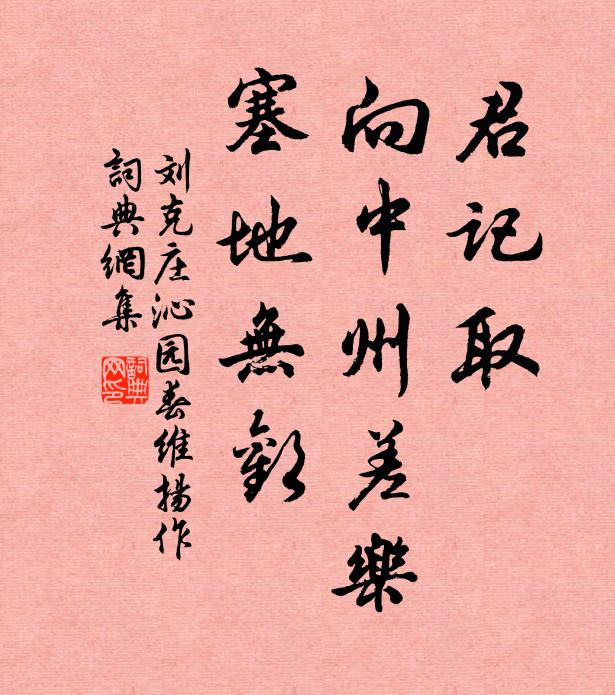 君记取
向中州差樂
塞地無歡
刘克庄沁园春维揚作
詞典網集
詞典網印